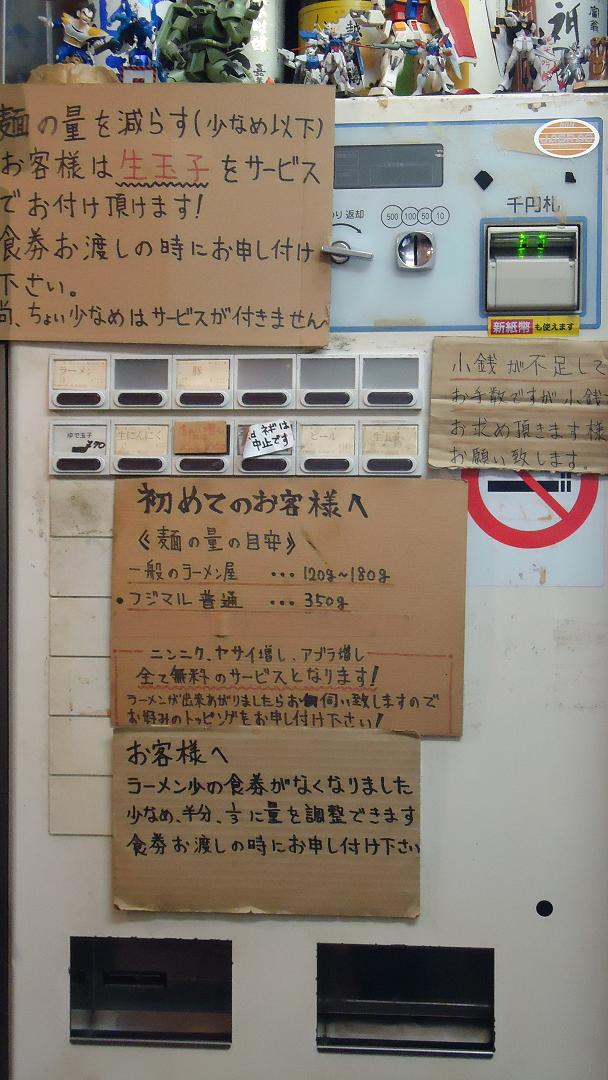 麺の量を減らす(少なめ以下)
お客様は生玉子をサービス
でお付け頂けます!
食券お渡しの時にお申し付け
下さい。
尚、ちょい少なめはサービスが付きません
返却
500 100 50 10
千円札
新紙幣も使えます
小銭が不足して
お手数ですが小銭
お求め頂きます様
お願い致します。
ラーメン
豚
ゆで玉子
生にんにく
ネギは
中止です
ビール
初めてのお客様へ
《麺の量の目安》
一般のラーメン屋 ・・・120g~180g
・フジマル普通 ・・・350g
ニンニク、ヤサイ増し、アブラ増し
全て無料のサービスとなります!
ラーメンが出来あがりましたらお伺い致しますので
お好みのトッピングをお申し付け下さい!
お客様へ
ラーメン少の食券がなくなりました
少なめ、半分、1/3に量を調整できます
食券お渡しの時にお申し付け下さい